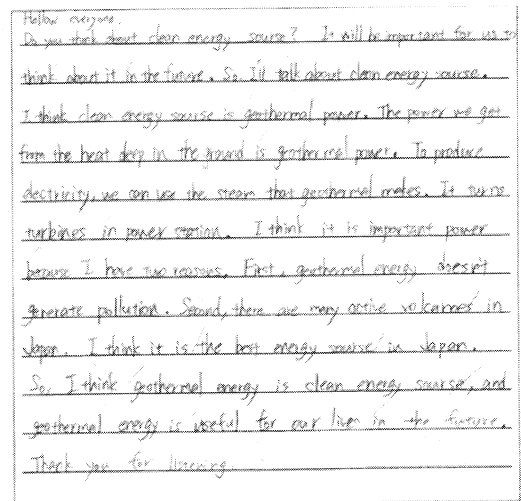 Hallow everyone.
Do you think about clean energy sourse? It will be important for us to
think about it in the future. So, I'll talk about clean energy sourse.
I think clean energy sourse is geothermal power. The power we get
from the heat deep in the ground is geothermal power. To produce
electricity, we can use the steam that geothermal makes. It turns
turbines in power station. I think it is important power
because I have two reasons. First, geothermal energy doesn't
generate pollution. Second, there are many active volcanoes in
Japan. I think it is the best energy sourse in Japan.
So, I think geothermal energy is clean energy sourse, and
geothermal energy is useful for our lives in the future.
Thank you for listening.